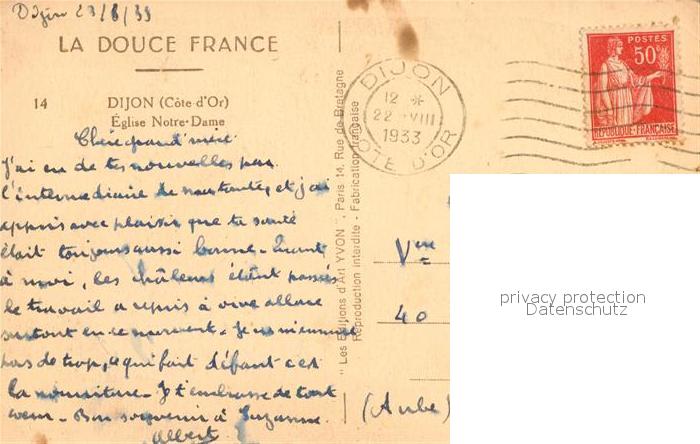 Dijon 23/8/33
LA DOUCE FRANCE
14 DIJON (Côte-d'Or)
Église Notre-Dame
Chère grand'mère
J'ai eu de tes nouvelles par
l'intermédiaire de mes tantes, et j'ai
appris avec plaisir que ta santé
était toujours aussi bonne. Quant
à moi, les chaleurs étant passées
le travail a repris à vive allure
surtout en ce moment. Je ne m'ennuie
pas de trop, ce qui fait défaut c'est
la nourriture. Je t'embrasse de tout
coeur. Bon souvenir à Suzanne.
Albert
"Les Editions d'Art YVON", Paris 14, Rue de Bretagne
Reproduction interdite - Fabrication française
DIJON
12 *
22 VIII
1933
COTE D'OR
POSTES
50c
REPUBLIQUE FRANÇAISE
Vve
40
(Aube)
privacy protection
Datenschutz